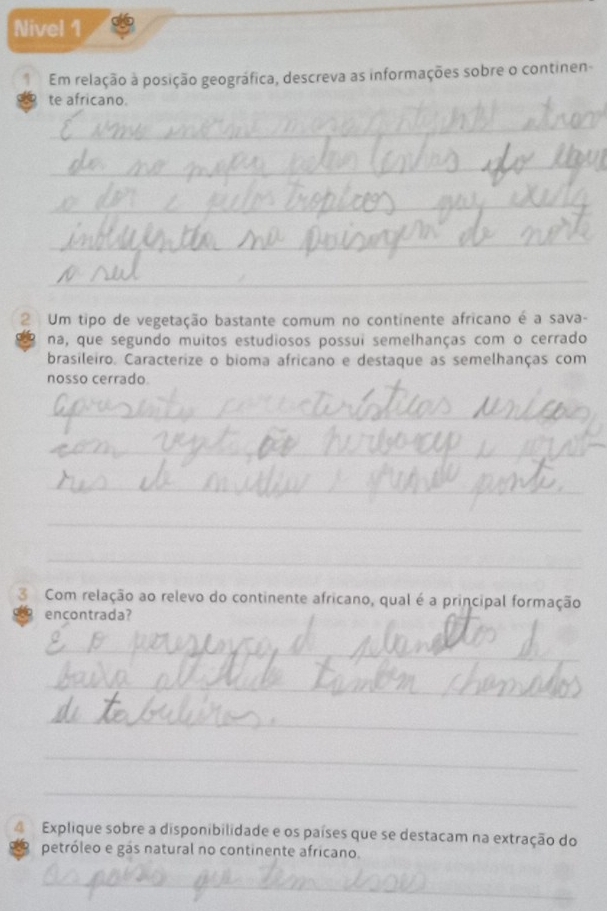 Nível 1
1 Em relação à posição geográfica, descreva as informações sobre o continen-
te africano.
É uma enorme massa
da no mapa pelas linhas do equ
o dor e pelos tropicos que exerce
na paisagem de norte
a sul
2 Um tipo de vegetação bastante comum no continente africano é a sava-
na, que segundo muitos estudiosos possui semelhanças com o cerrado
brasileiro. Caracterize o bioma africano e destaque as semelhanças com
nosso cerrado.
apresenta características unicas,
com vegetação e
res de médio e grande ponte.
3 Com relação ao relevo do continente africano, qual é a principal formação
encontrada?
É a de planaltos de
baixa altitude também chamados
de tabuleiros.
4 Explique sobre a disponibilidade e os países que se destacam na extração do
petróleo e gás natural no continente africano.
que tem esses